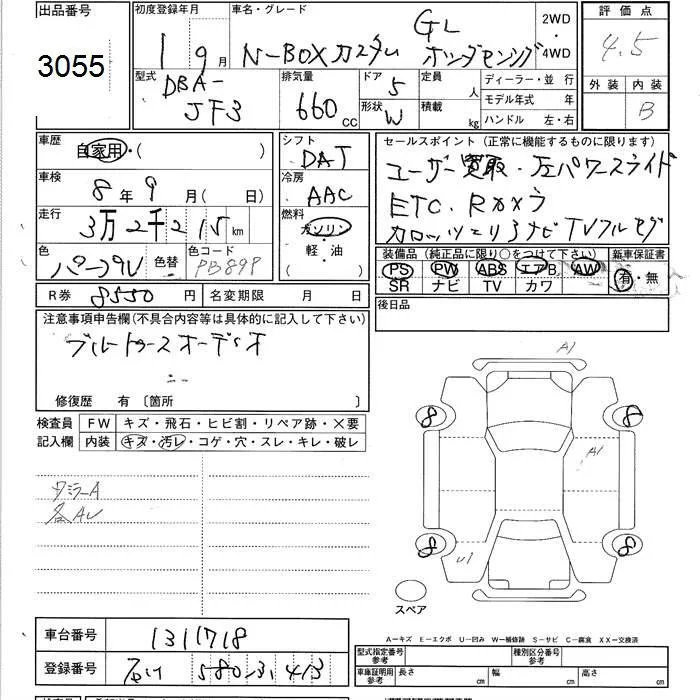 出品番号 初度登録年月 車名・グレード 評価点
3055 1 9月 N-BOXカスタム GL ホンダセンシング 2WD 4WD 4.5
型式 排気量 ドア 定員 ディーラー・並行 外装 内装
DBA-JF3 660cc 5 人 モデル年式 年 B
形状 W 積載 kg ハンドル 左・右
車歴 自家用・( ) シフト セールスポイント(正常に機能するものに限ります)
DAT ユーザー買取・左パワースライド
車検 8年9月(日) 冷房 AAC ETC・Rカメラ
走行 3万2千215km 燃料 ガソリン・軽・油 ナビTVフルセグ
色 パープル 色替 色コード 装備品(純正品に限り○をつけて下さい) 新車保証書
PS PW ABS エアB. AW 有・無
SR ナビ TV カワ
R券 8550円 名変期限 月 日 後日品
注意事項申告欄(不具合内容等は具体的に記入して下さい)
ブルートゥースオーディオ
修復歴 有〔箇所 〕
検査員 FW キズ・飛石・ヒビ割・リペア跡・×要
記入欄 内装 キズ・汚レ・コゲ・穴・スレ・キレ・破レ
A1
8 8
A1
8 8
U1
スペア
A-キズ E-エクボ U-凹み W-補修跡 S-サビ C-腐食 XX-交換済
車台番号 1311718 型式指定番号 参考 種別区分番号 参考
登録番号 石川 580 413 車庫証明用 参考 長さ cm 幅 cm 高さ cm